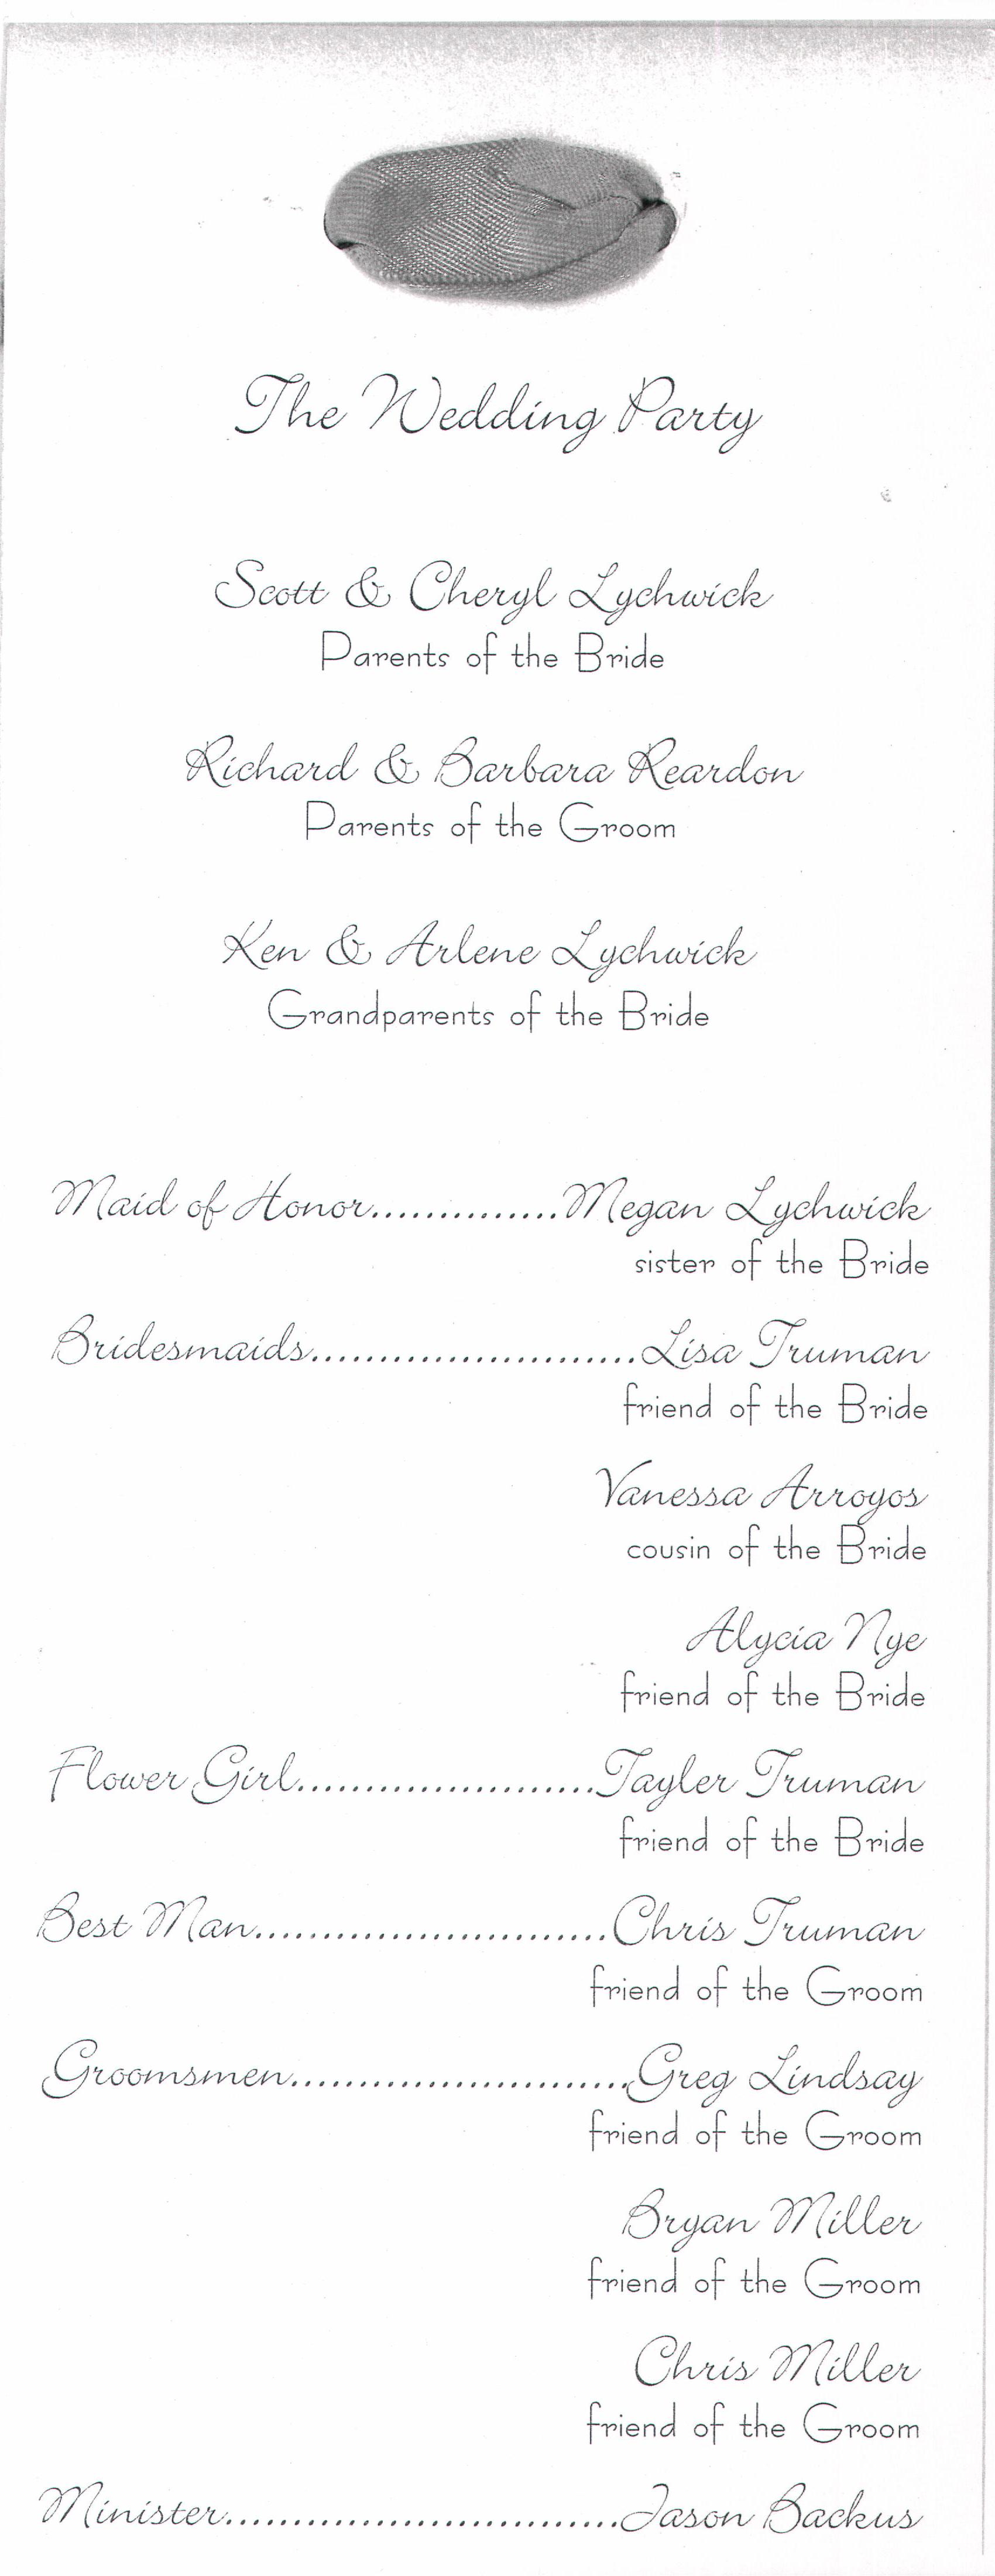 The Wedding Party
Scott & Cheryl Lychwick
Parents of the Bride
Richard & Barbara Reardon
Parents of the Groom
Ken & Arlene Lychwick
Grandparents of the Bride
Maid of Honor..............Megan Lychwick
sister of the Bride
Bridesmaids........................Lisa Truman
friend of the Bride
Vanessa Arroyos
cousin of the Bride
Alycia Nye
friend of the Bride
Flower Girl......................Tayler Truman
friend of the Bride
Best Man..........................Chris Truman
friend of the Groom
Groomsmen.........................Greg Lindsay
friend of the Groom
Bryan Miller
friend of the Groom
Chris Miller
friend of the Groom
Minister.............................Jason Backus